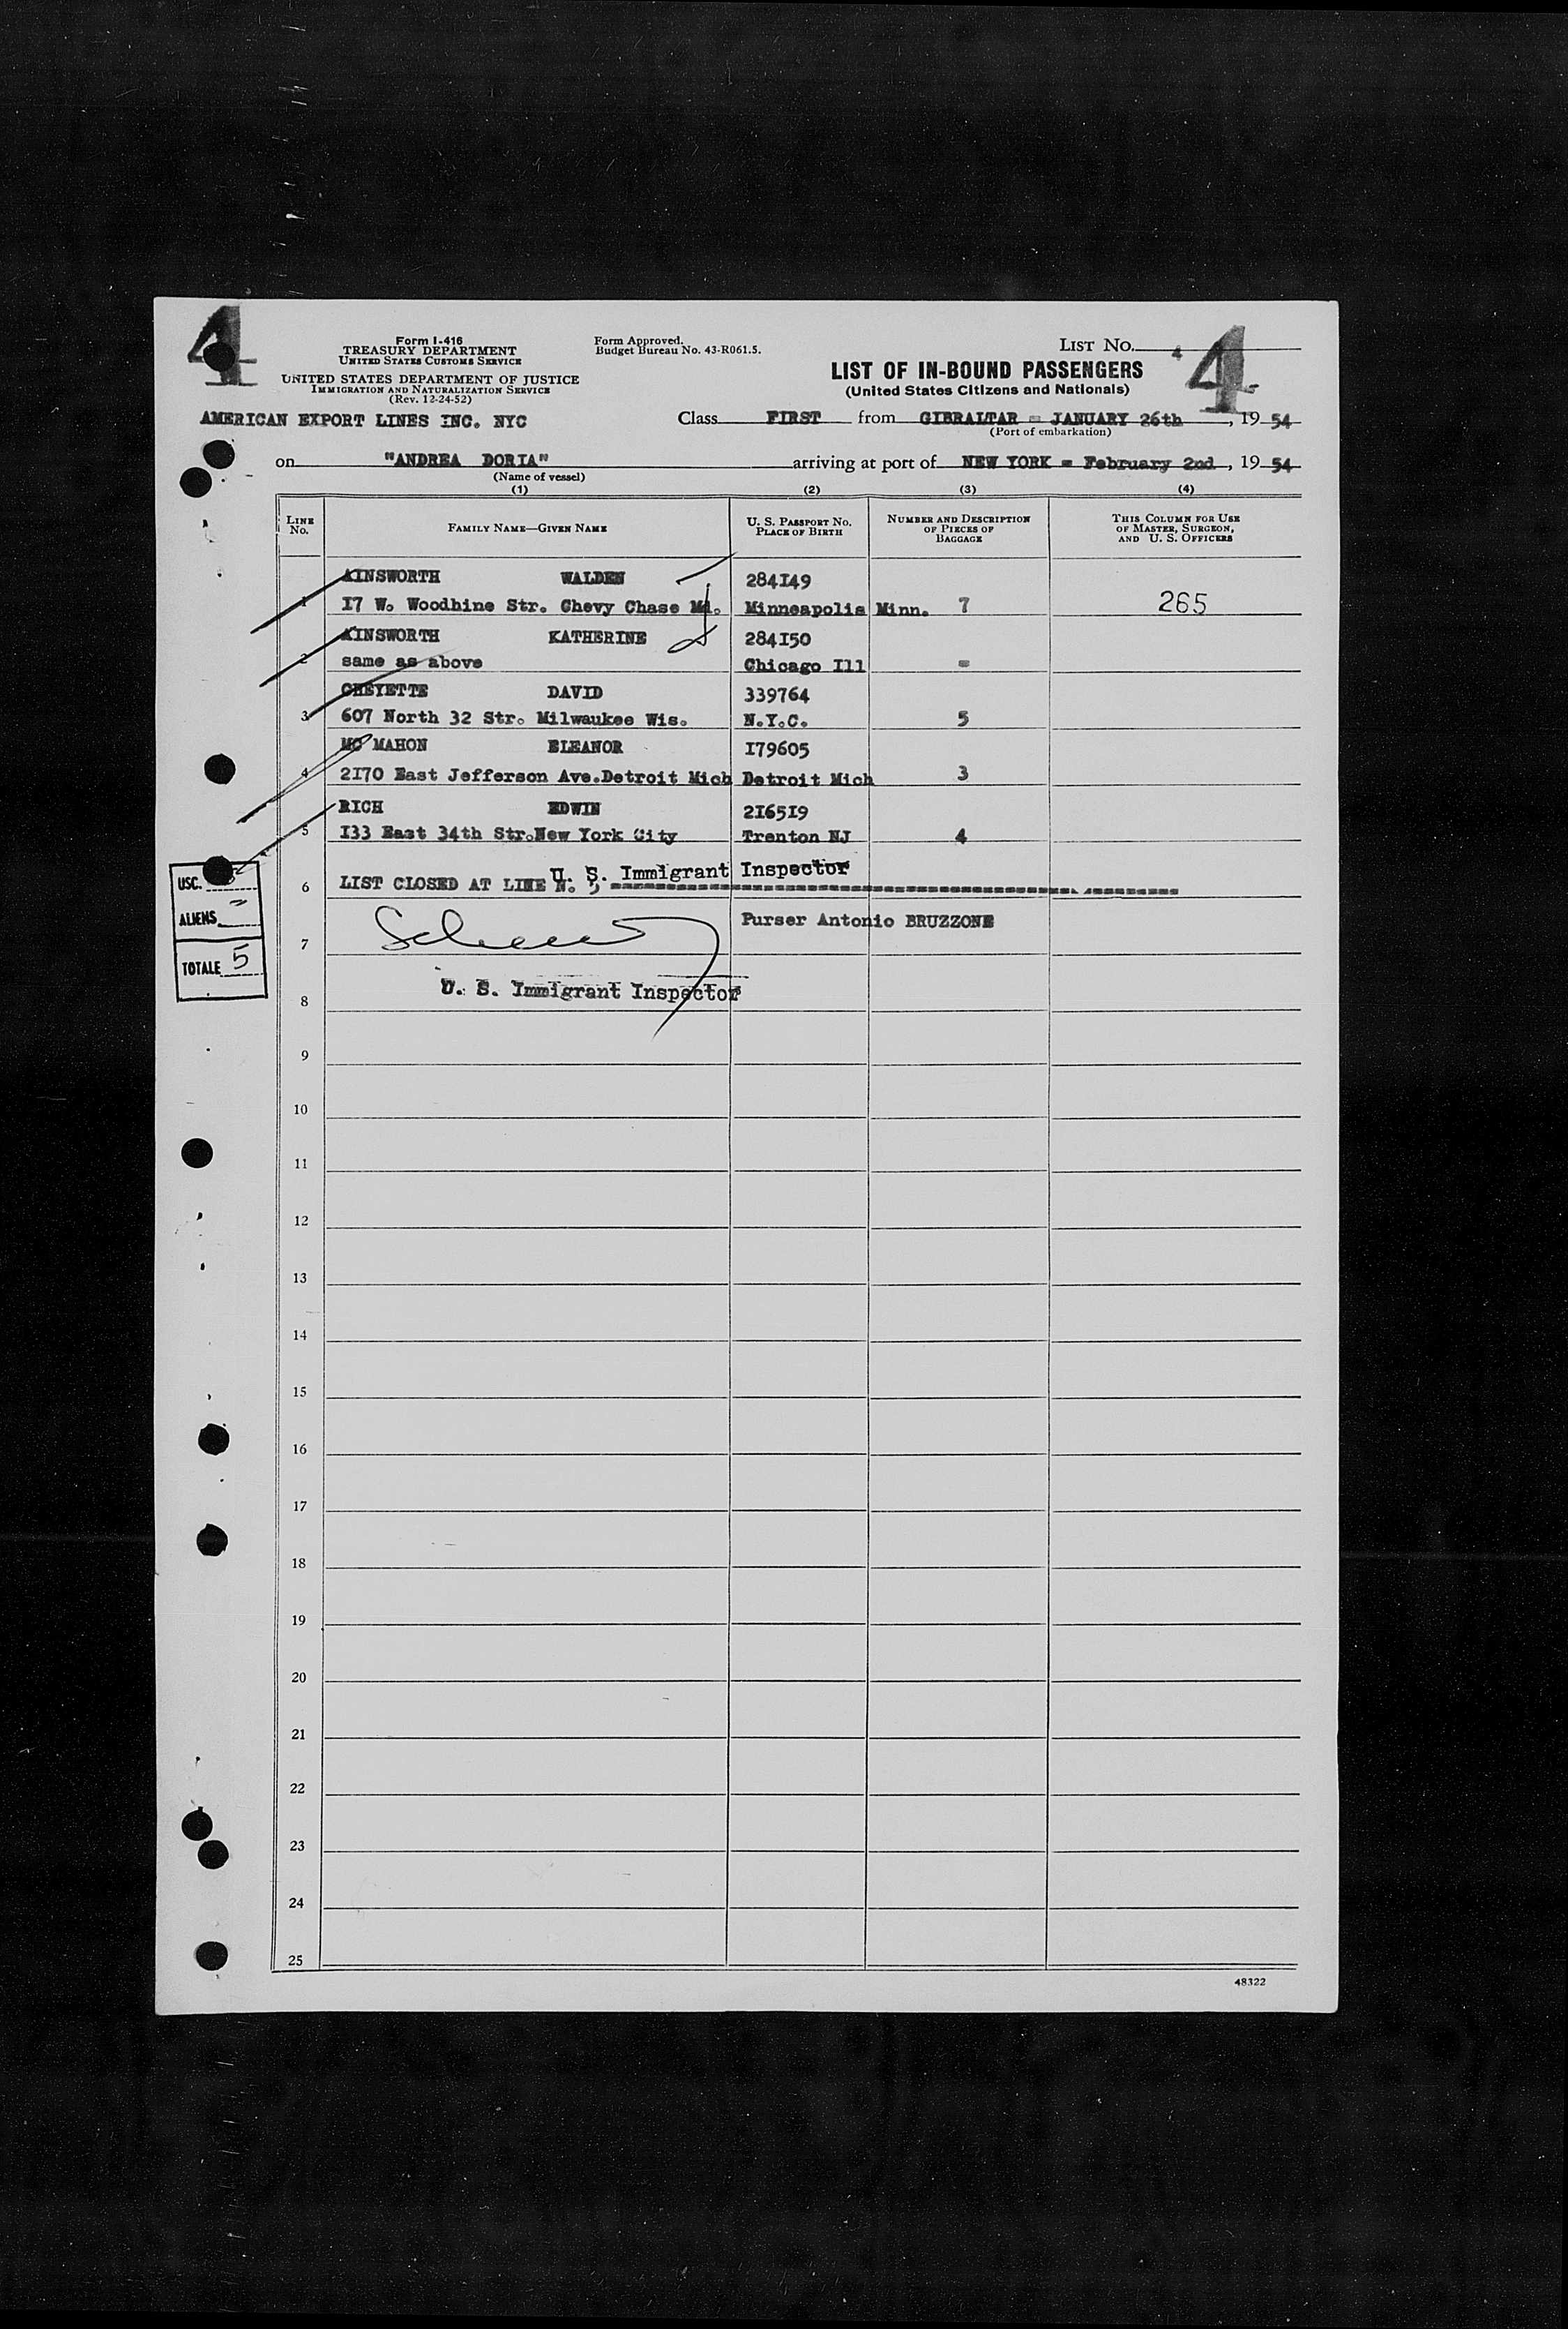 4
Form I-416
TREASURY DEPARTMENT
UNITED STATES CUSTOMS SERVICE
UNITED STATES DEPARTMENT OF JUSTICE
IMMIGRATION AND NATURALIZATION SERVICE
(Rev. 12-24-52)
Form Approved.
Budget Bureau No. 43-R061.5.
LIST NO. 4
4
LIST OF IN-BOUND PASSENGERS
(United States Citizens and Nationals)
AMERICAN EXPORT LINES INC. NYC
Class FIRST from GIBRALTAR = JANUARY 26th, 19 54
(Port of embarkation)
on "ANDREA DORIA" arriving at port of NEW YORK = February 2nd, 19 54
(Name of vessel)
(1) (2) (3) (4)
LINE No. FAMILY NAME—GIVEN NAME U. S. PASSPORT NO. PLACE OF BIRTH NUMBER AND DESCRIPTION OF PIECES OF BAGGAGE THIS COLUMN FOR USE OF MASTER, SURGEON, AND U. S. OFFICERS
AINSWORTH WALDEN 284149
1 17 W. Woodbine Str. Chevy Chase Md. Minneapolis Minn. 7 265
AINSWORTH KATHERINE 284150
2 same as above Chicago Ill =
CHEYETTE DAVID 339764
3 607 North 32 Str. Milwaukee Wis. N.Y.C. 5
MC MAHON ELEANOR 179605
4 2170 East Jefferson Ave.Detroit Mich Detroit Mich 3
RICH EDWIN 216519
5 133 East 34th Str.New York City Trenton NJ 4
U. S. Immigrant Inspector
6 LIST CLOSED AT LINE N. 5
Purser Antonio BRUZZONE
7
U. S. Immigrant Inspector
8
USC.
ALIENS =
TOTALE 5
9
10
11
12
13
14
15
16
17
18
19
20
21
22
23
24
25
48322